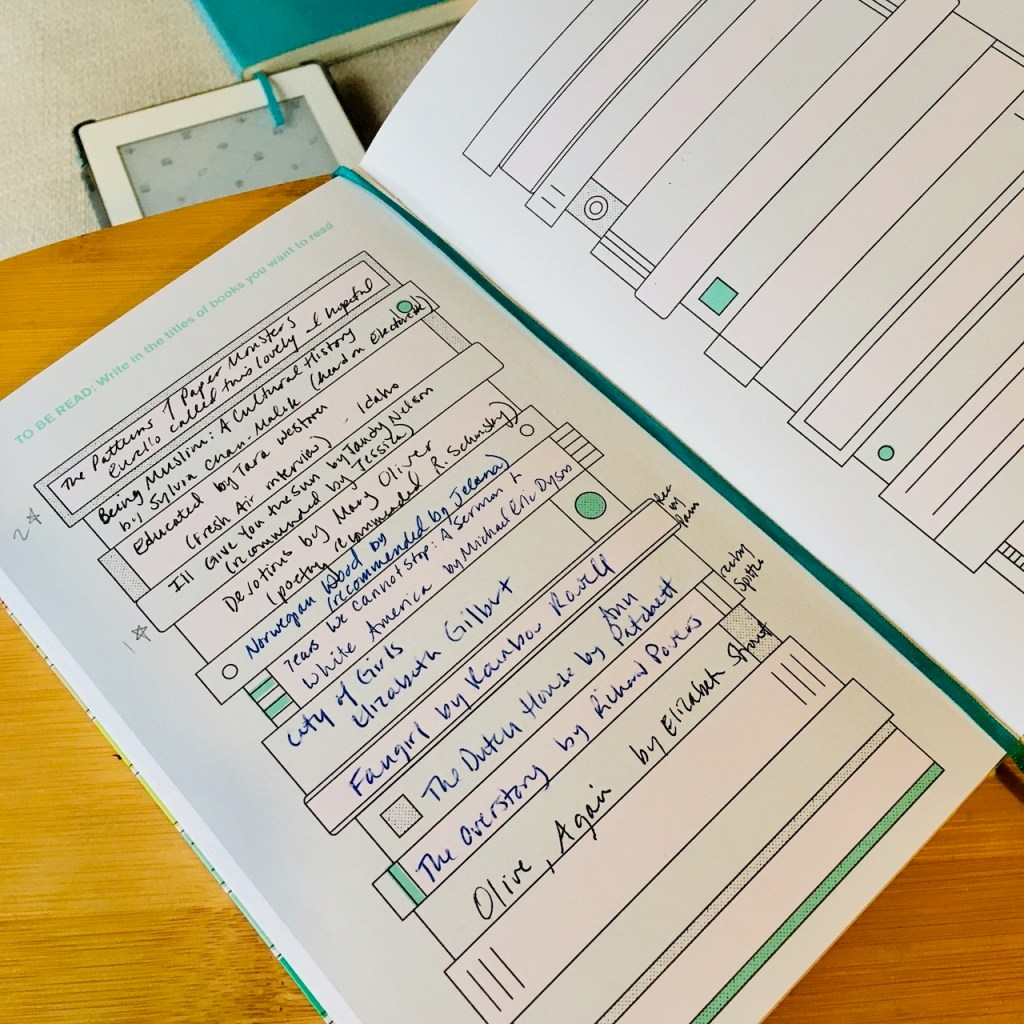 TO BE READ: Write in the titles of books you want to read
The Patterns of Paper Monsters
called this lovely & hopeful
Being Muslim: A Cultural History
by Sylvia Chan-Malik (heard on
Educated by Tara Westover
(Fresh Air interview) - Idaho
I'll Give You the Sun by Jandy Nelson
(recommended by Jessica)
Devotions by Mary Oliver
(poetry, recommended R.
Norwegian Wood by
(recommended by Jelena)
Tears We Cannot Stop: A Sermon to
White America by Michael Eric Dyson
City of Girls
Elizabeth Gilbert
Fangirl by Rainbow Rowell
The Dutch House by Ann
Patchett
The Overstory by Richard Powers
Olive, Again by Elizabeth Strout
2☆
1☆